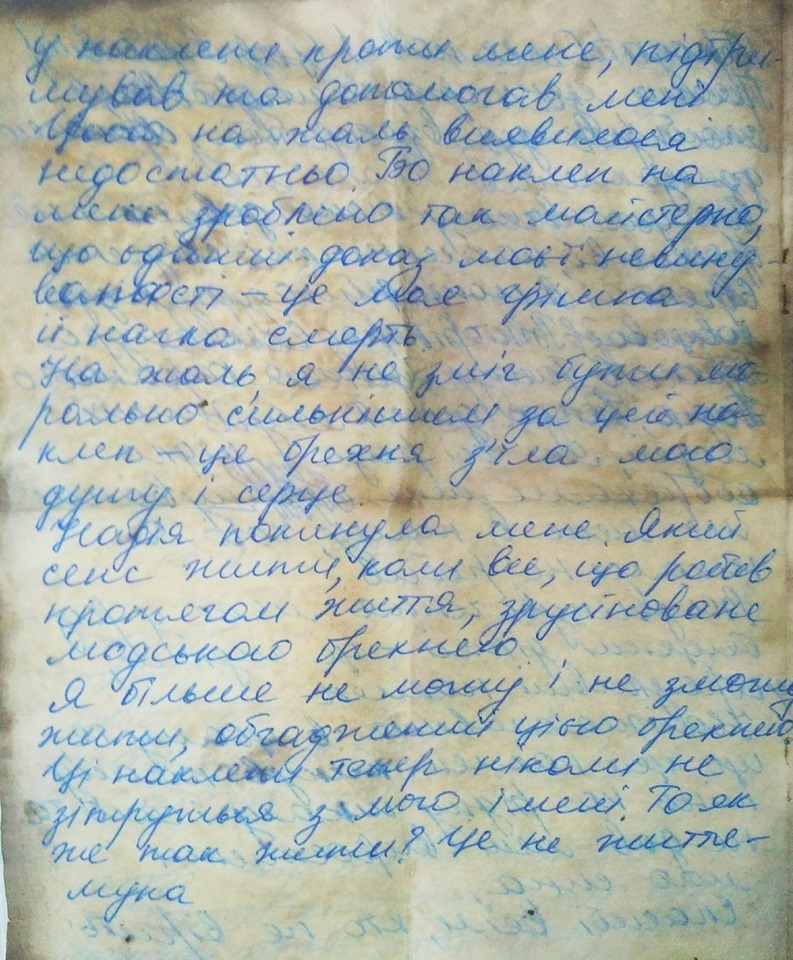 у наклепи проти мене, підтри-
мував та допомагав мені
на жаль виявилося
недостатньо. Бо наклеп на
мене зроблено так майстерно,
що єдиний доказ моєї невину-
ватості – це моя
й нагла смерть.
На жаль, я не зміг бути мо
рально сильнішим за цей на
клеп – ця брехня з'їла мою
душу і серце.
Надія покинула мене. Який
сенс жити, коли все, що робив
протягом життя, зруйноване
людською брехнею.
Я більше не можу і не зможу
жити, обгаджений цією брехнею.
Ці наклепи тепер ніколи не
зітруться з мого імені. То як
же так жити? Це не життє-
мука